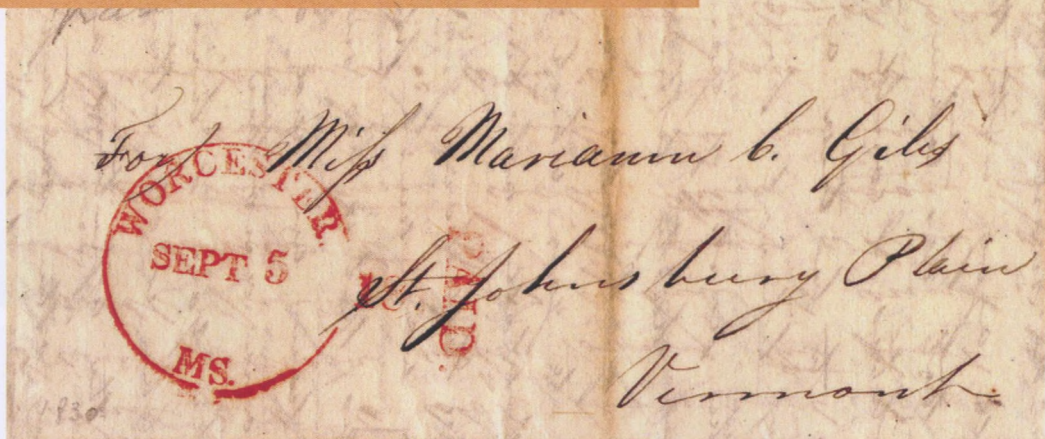 For Miss Mariann C. Giles
WORCESTER
SEPT 5
MS.
PAID
St. Johnsbury Plain
Vermont.
1830